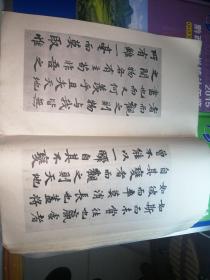 如斯而未嘗往也嬴虛者
如彼而卒莫消長也盖將
自其變者而觀之則天地
曾不能以一瞬自其不變
者而觀之則物與我皆無
盡也而又何羨乎且夫天地
之間物各有主苟非吾之
所有雖一毫而莫取惟
2015